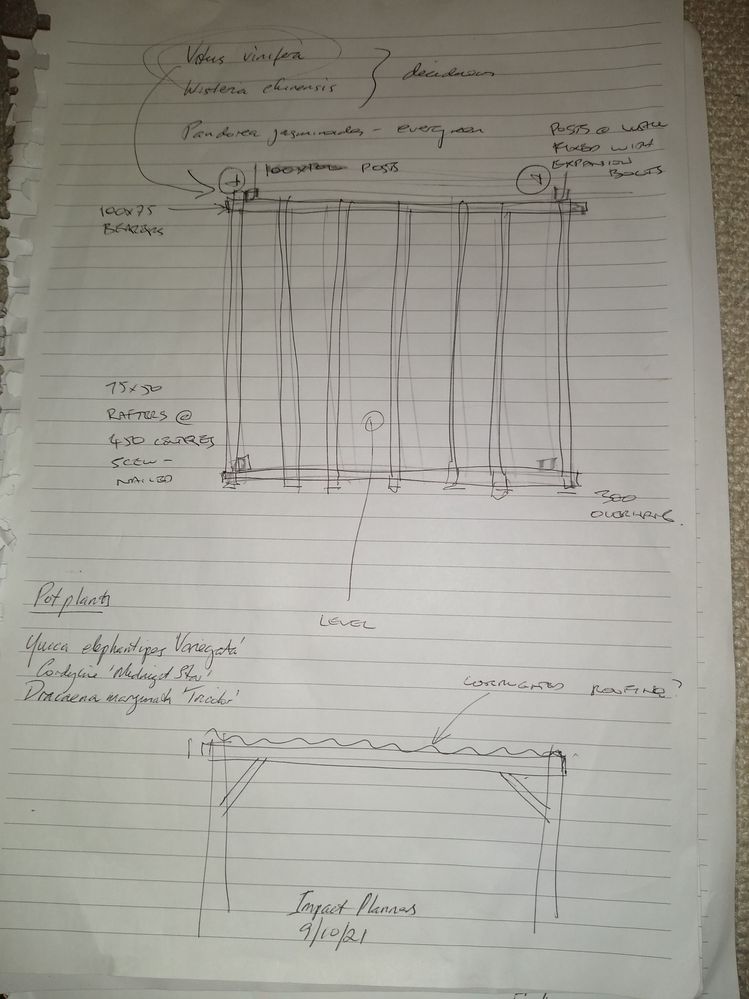 Vitus vinifera
Wisteria chinensis
deciduous
Pandorea jasminoides - evergreen
POSTS @ WALL
FIXED WITH
EXPANSION
BOLTS
100x100 POSTS
100x75
BEARERS
75x50
RAFTERS @
450 CENTRES
SCEW-
NAILED
300
OVERHANG.
LEVEL
Pot plants
Yucca elephantipes 'Variegata'
Cordyline 'Midnight Star'
Dracaena marginata 'Tricolor'
CORRUGATED ROOFING?
Impact Planners
9/10/21